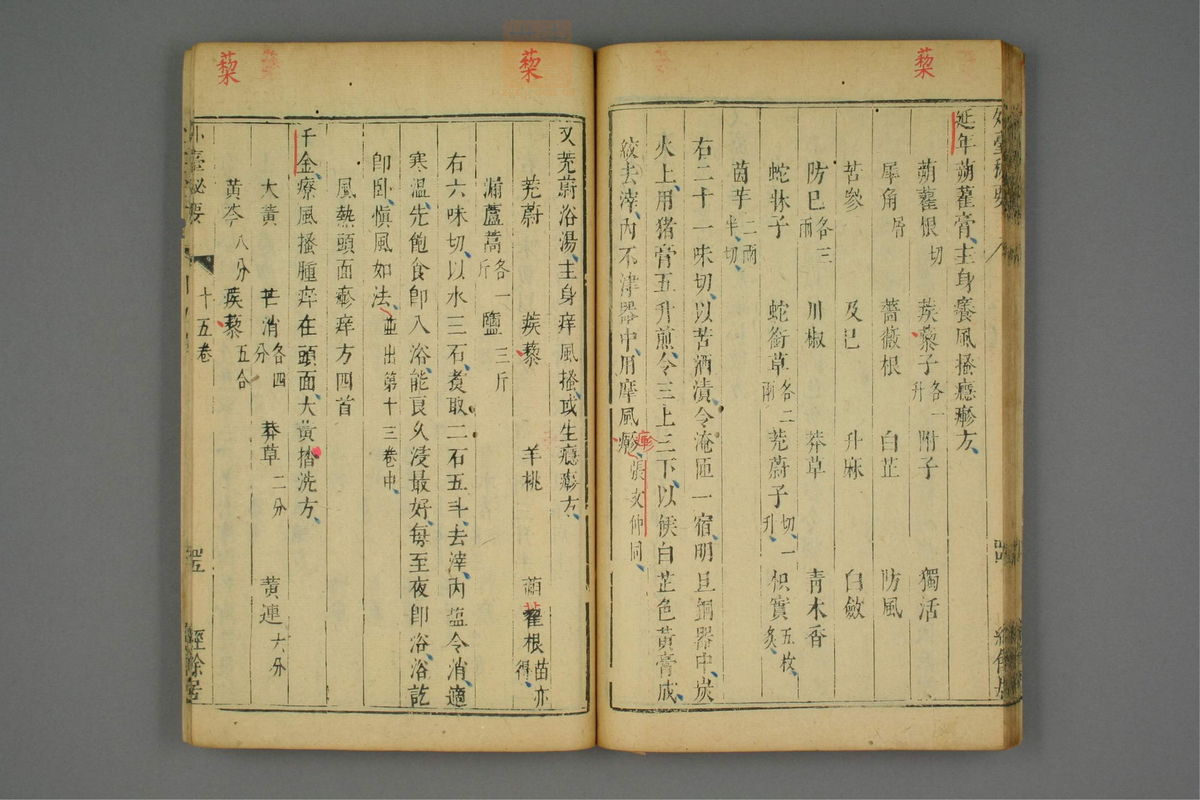 藜
延年蒴藋膏主身癢風搔癮㾦方
蒴藋根切 蒺藜子各一升 附子 獨活
犀角屑 薔薇根 白芷 防風
苦參 及已 升麻 白斂
防巳各三兩 川椒 莽草 青木香
蛇牀子 蛇銜草各二兩 茺蔚子切一升 枳實五枚炙
茵芋二兩半切
右二十一味切以苦酒漬令淹匝一宿明旦銅器中炭
火上用猪膏五升煎令三上三下以候白芷色黃膏成
絞去滓內不津器中用摩風㾦張文仲同
藜
又茺蔚浴湯主身痒風搔或生癮㾦方
茺蔚 蒺藜 羊桃 蒴藋根苗亦得
漏蘆蒿各一斤 鹽三斤
右六味切以水三石煑取二石五斗去滓內塩令消適
寒溫先飽食卽入浴能良久浸最好每至夜卽浴浴訖
卽卧愼風如法並出第十三卷中
風熱頭面㾦痒方四首
千金療風搔腫痒在頭面大黃揩洗方
大黃 芒消各四分 莽草二分 黃連六分
黃芩八分 蒺藜五合
藜
外臺秘要 十五卷 四五 經餘居